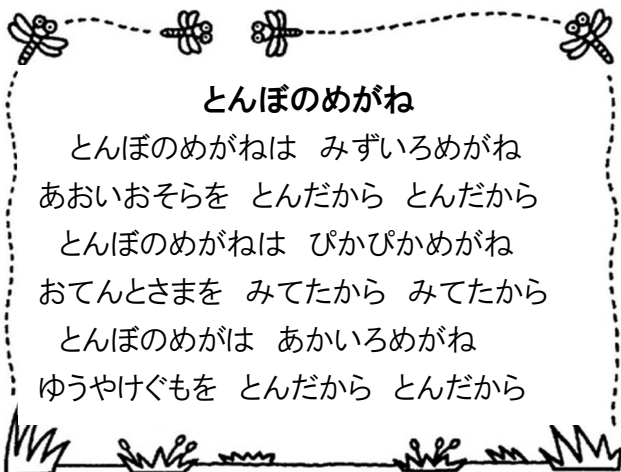 とんぼのめがね
とんぼのめがねは　みずいろめがね
あおいおそらを　とんだから　とんだから
とんぼのめがねは　ぴかぴかめがね
おてんとさまを　みてたから　みてたから
とんぼのめがは　あかいろめがね
ゆうやけぐもを　とんだから　とんだから